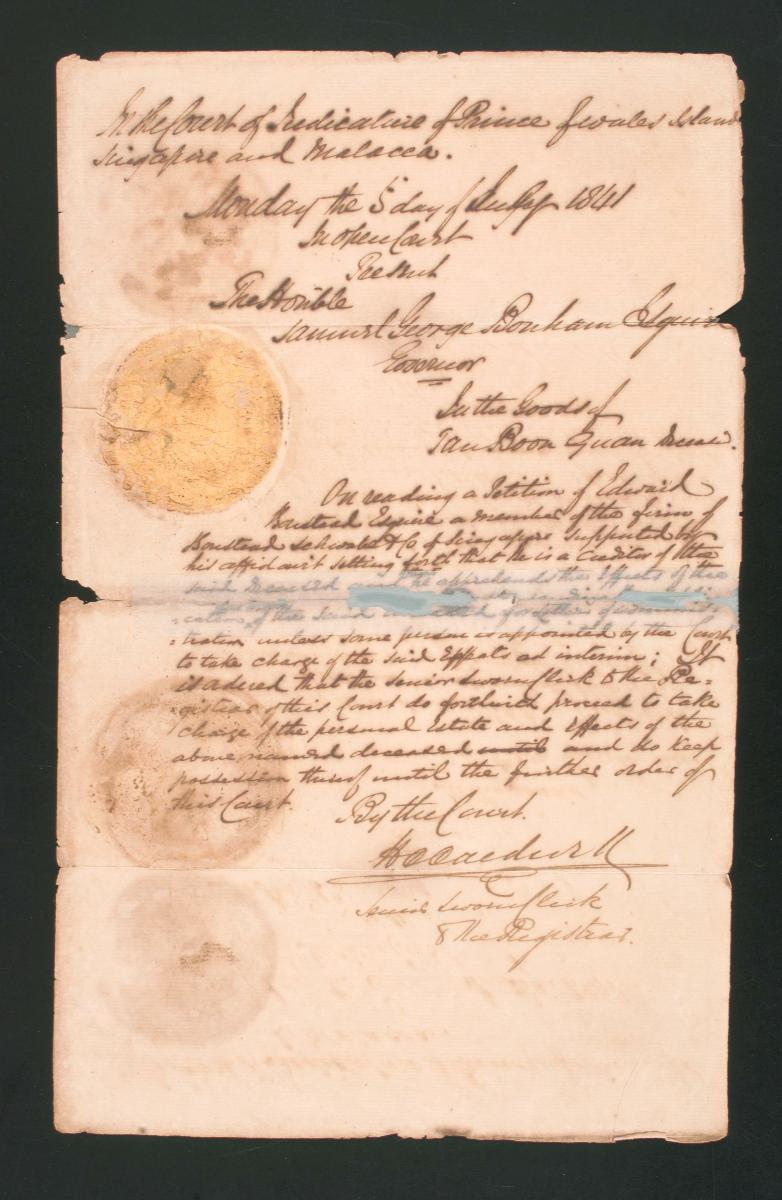 In the Court of Judicature of Prince of Wales Island
Singapore and Malacca.
Monday the 5th day of July 1841
In open Court
Present
The Honble
Samuel George Bonham Esquire
Governor
In the Goods of
Tan Boon Quan Deceasd.
On reading a Petition of Edward
Boustead Esquire a member of the firm of
Boustead Schwabe & Co of Singapore supported by
his affidavit setting forth that he is a Creditor of the
said deceased and he apprehends the Effects of the
-cation of the said for Letters of adminis
-tration unless some person is appointed by the Court
to take charge of the said Effects ad interim; It
is ordered that the senior sworn Clerk to the Re=
=gistrar of this Court do forthwith proceed to take
charge of the personal Estate and Effects of the
above named deceased until and do keep
possession thereof until the further order of
this Court.
By the Court.
H C Caldwell
Senior Sworn Clerk
to the Registrar.